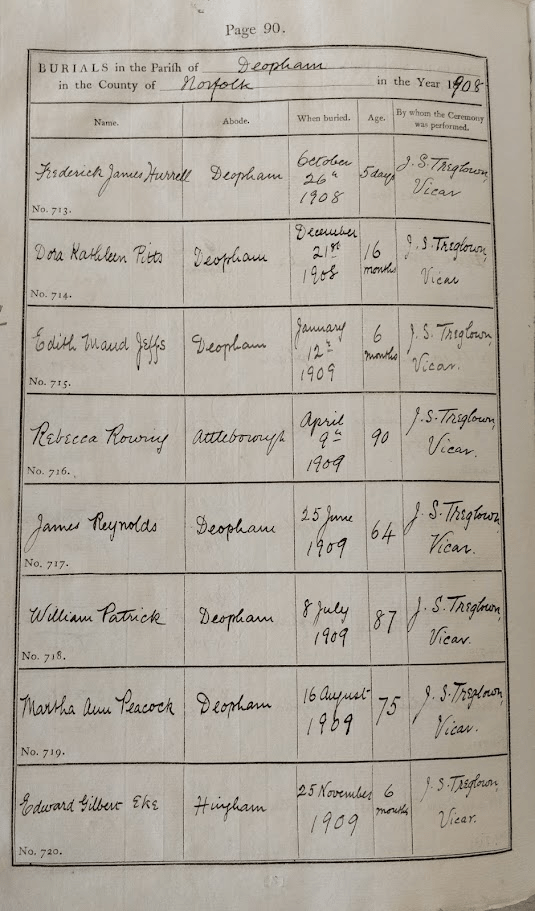 Page 90.
BURIALS in the Parish of Deopham
in the County of Norfolk in the Year 1908
Name. Abode. When buried. Age. By whom the Ceremony
was performed.
Frederick James Hurrell Deopham October 26th 1908 5 days J. S. Treglown, Vicar
No. 713.
Dora Kathleen Pitts Deopham December 21st 1908 16 months J. S. Treglown, Vicar
No. 714.
Edith Maud Jeffs Deopham January 12th 1909 6 months J. S. Treglown, Vicar.
No. 715.
Rebecca Rowing Attleborough April 9th 1909 90 J. S. Treglown, Vicar.
No. 716.
James Reynolds Deopham 25 June 1909 64 J. S. Treglown, Vicar.
No. 717.
William Patrick Deopham 8 July 1909 87 J. S. Treglown, Vicar.
No. 718.
Martha Ann Peacock Deopham 16 August 1909 75 J. S. Treglown, Vicar.
No. 719.
Edward Gilbert Eke Hingham 25 November 1909 6 months J. S. Treglown, Vicar.
No. 720.